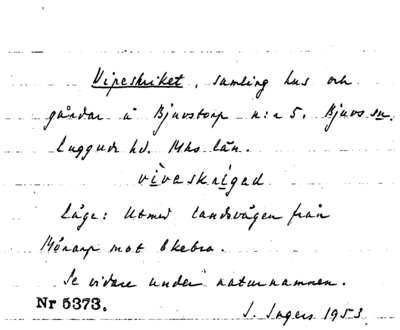 Vipeskriket, samling hus och
gårdar å Bjuvstorp n:r 5. Bjuvs sn.
Luggude hd. Mhs län.
vìvaskrígad
Läge: Utmed landsvägen från
Mörarp mot Ekeby.
Se vidare under naturnamnen.
Nr 5373. I. Ingers 1953.